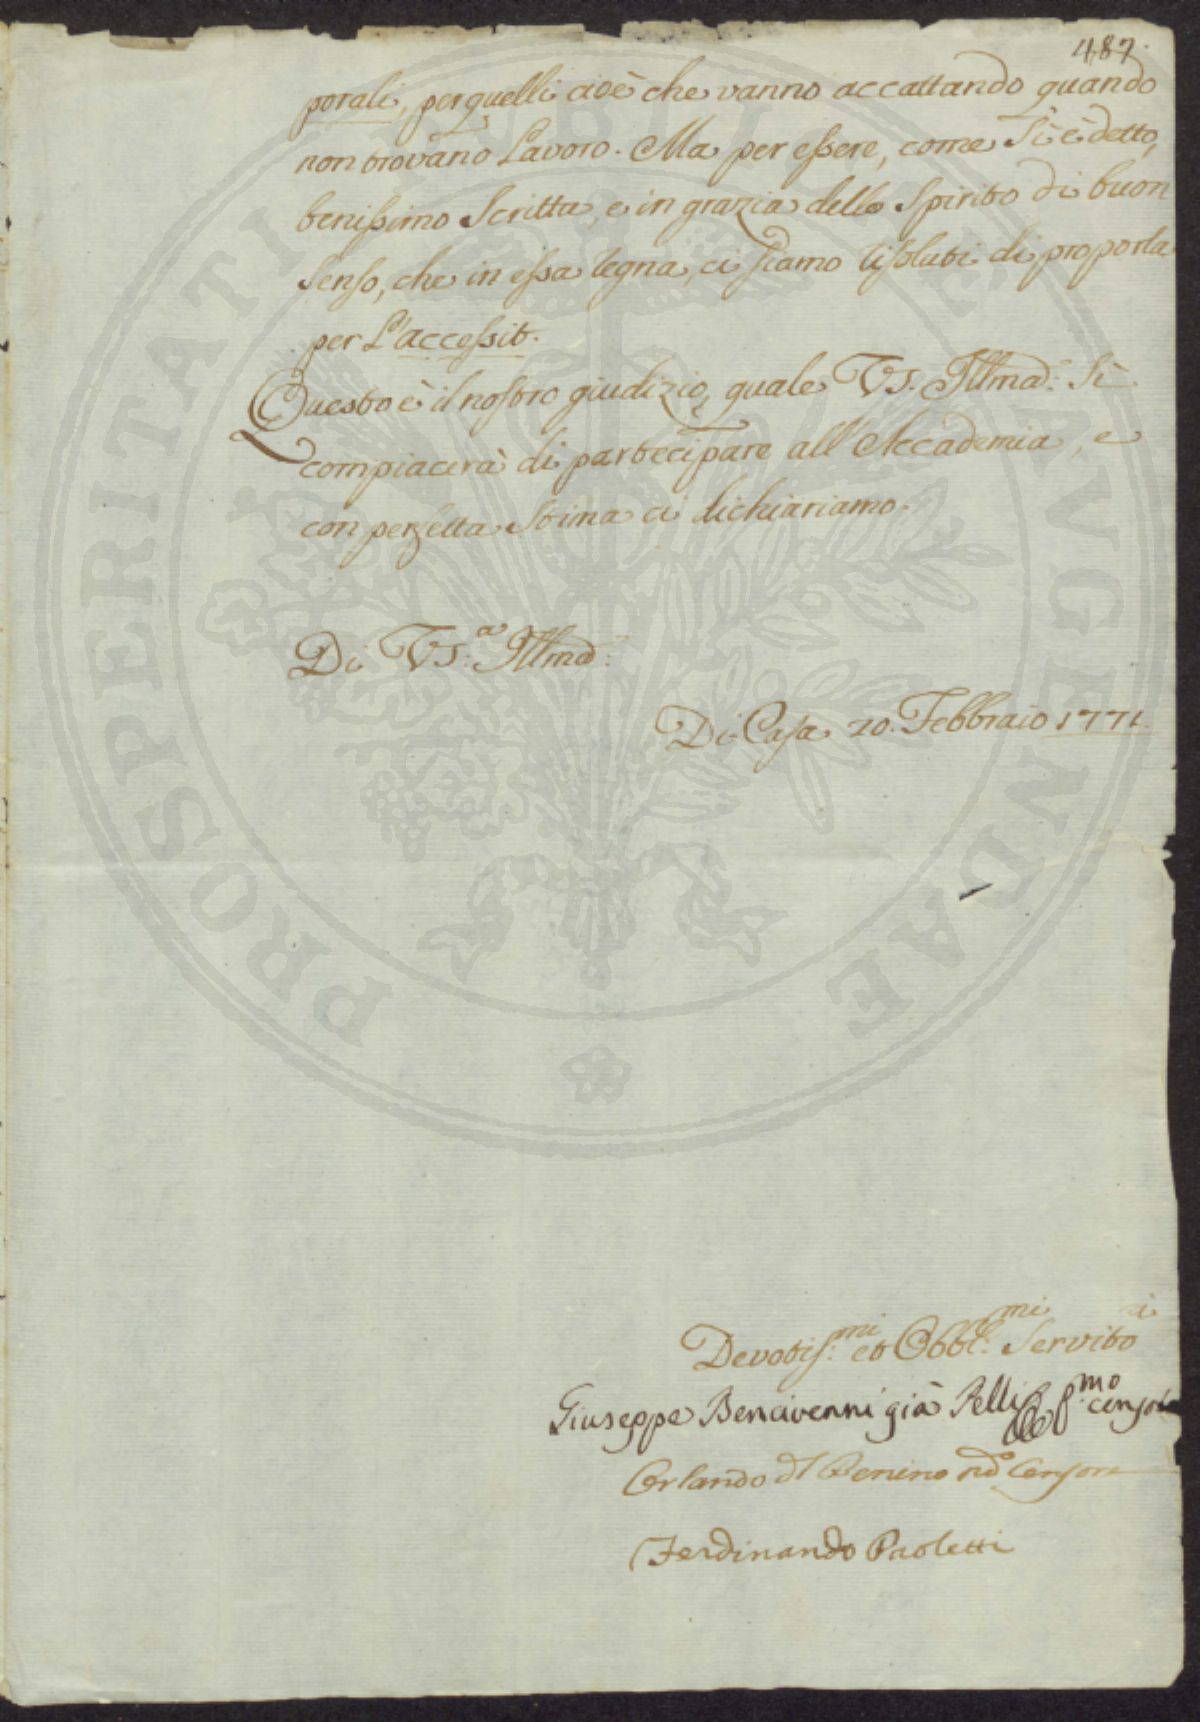 487.
porali, per quelli cioè che vanno accattando quando
non trovano Lavoro. Ma per essere, come Si è detto,
benissimo Scritta, e in grazia dello Spirito di buon
senso, che in essa regna, ci siamo risoluti di proporla
per L'accessit.
Questo è il nostro giudizio, quale VS. Illma: Si
compiacerà di partecipare all'Accademia, e
con perfetta Stima ci dichiariamo.
Di VS:a Illma:
Di Casa 20. Febbraio 1771.
Devotis:mi et Obbl:mi Servito à
Giuseppe Bencivenni già Pelli P:mo censore
Orlando del Benino Censore
Ferdinando Paoletti
PROSPERITATI PUBLICAE AUGENDAE